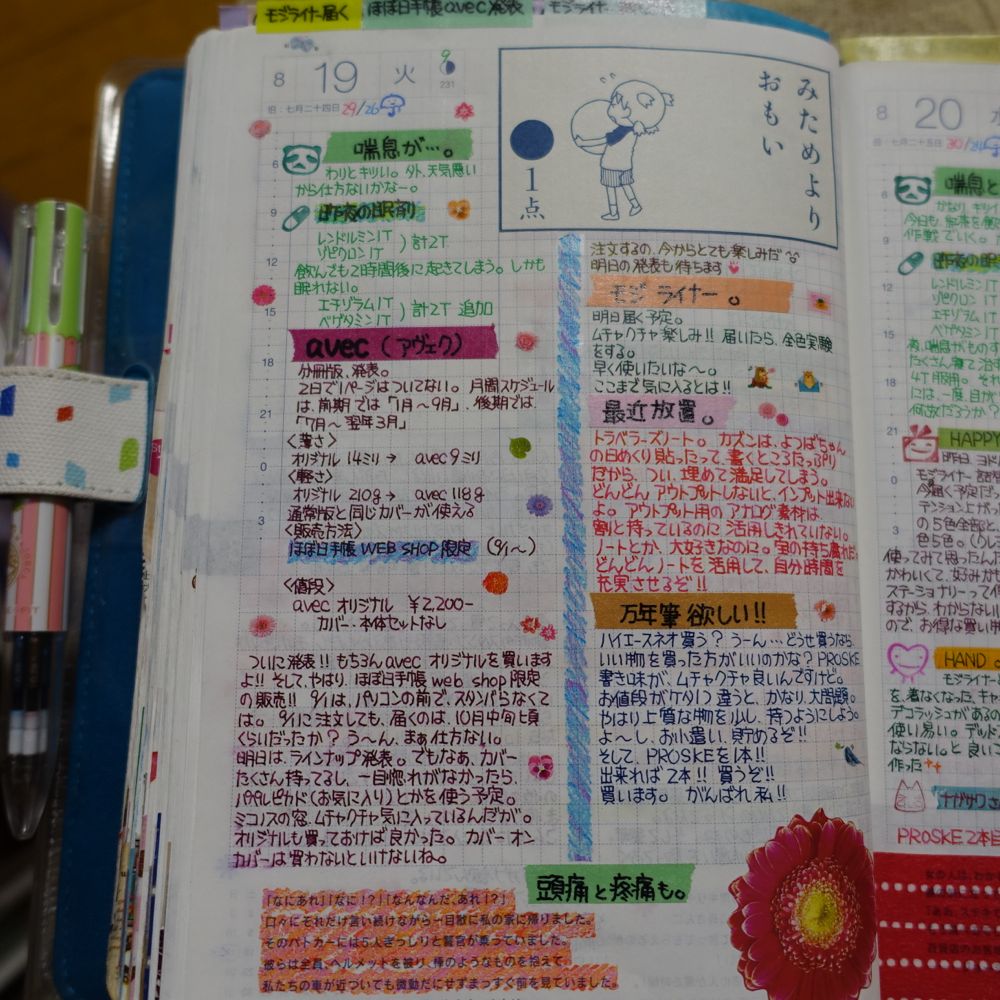 モジライナー届く
ほぼ日手帳avec発表
モジライナー
8 19 火
231
旧:七月二十四日 29/26
喘息が…。
わりとキツい。外、天気悪い
から仕方ないかなー。
昨夜の眠剤
レンドルミン1T
ゾピクロン1T
計2T
飲んでも2時間後に起きてしまう。しかも
眠れない。
エチゾラム1T
ベゲタミン1T
計2T 追加
avec (アヴェク)
分冊版、発表。
2日で1ページはついてない。月間スケジュール
は、前期では「1月〜9月」、後期では、
「7月〜翌年3月」
<薄さ>
オリジナル 14ミリ→ avec 9ミリ
<軽さ>
オリジナル 210g→ avec 118g
通常版と同じカバーが使える
<販売方法>
ほぼ日手帳 WEB SHOP 限定 (9/1〜)
<値段>
avec オリジナル ¥2,200-
カバー、本体セットなし
ついに発表!! もちろん avec オリジナルを買います
よ!! そして、やはり、ほぼ日手帳 web shop 限定
の販売!! 9/1は、パソコンの前で、スタンバらなくて
は。9/1に注文しても、届くのは、10月中旬頃
くらいだったか? う〜ん、まぁ仕方ない。
明日は、ラインナップ発表。でもなぁ、カバー
たくさん持ってるし、一目惚れがなかったら、
パタルピカド(お気に入り)とかを使う予定。
ミコノスの窓、ムチャクチャ気に入っているんだが。
オリジナルも買っておけば良かった。カバー オン
カバーは買わないといけないね。
みためより
おもい
1点
注文するの、今からとても楽しみだ
明日の発表も待ちます
モジライナー。
明日届く予定。
ムチャクチャ楽しみ!! 届いたら、全色実験
をする。
早く使いたいな〜。
ここまで気に入るとは!!
最近放置。
トラベラーズノート。カズンは、よつばちゃん
の日めくり貼ったって、書くところたっぷり
だから、つい、埋めて満足してしまう。
どんどん アウトプットしないと、インプット出来ない
よ。アウトプット用のアナログ素材は、
割と持っているのに 活用しきれていない。
ノートとか、大好きなのに。宝の持ち腐れだ。
どんどんノートを活用して、自分時間を
充実させるぞ!!
万年筆 欲しい!!
ハイエースネオ買う? うーん…どうせ買うなら、
いい物を買った方がいいのかな? PROSKE
書き味が、ムチャクチャ良いんですけど。
お値段がケタ1つ違うと、かなり、大問題。
やはり上質な物を少し、持つようにしよう。
よ〜し、お小遣い、貯めるぞ!!
そして、PROSKEを1本!!
出来れば2本!! 買うぞ!!
買います。 がんばれ私!!
頭痛と疼痛も。
「なにあれ」「なに!?」「なんなんだ、あれ!?」
口々にそれだけ言い続けながら一目散に私の家に帰りました。
そのパトカーには5人ぎっしりと警官が乗っていました。
彼らは全員、ヘルメットを被り、棒のようなものを抱えて、
私たちの車が近づいても微動だにせずまっすぐ前を見ていました。
8 20
旧:七月二十五日 30/
喘息と
かなり キツ
作戦でいく。
昨夜の眠
レンドルミン1T
ゾピクロン 1T
エチゾラム1T
ベゲタミン1T
4T服用。
には、一度、目が
何故だろう?
HAPPY
モジライナー
今週に予定だっ
テンション上がっ
の5色全部と、
色5色。
使ってみて思ったん
かわいくて、好みかも
ステーショナリーって
するから、わからない
ので、お得な買い物
HAND
モジライナーと
を、着なくなった、キャ
デコラッシュがあるの
使い易い。
ならない。と良いこ
作った
ナガサワさ
PROSKE 2本目